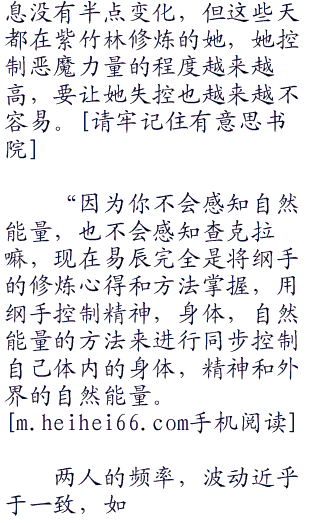 息没有半点变化，但这些天
都在紫竹林修炼的她，她控
制恶魔力量的程度越来越
高，要让她失控也越来越不
容易。[请牢记住有意思书
院]
“因为你不会感知自然
能量，也不会感知查克拉
嘛，现在易辰完全是将纲手
的修炼心得和方法掌握，用
纲手控制精神，身体，自然
能量的方法来进行同步控制
自己体内的身体，精神和外
界的自然能量。
[m.heihei66.com手机阅读]
两人的频率，波动近乎
于一致，如